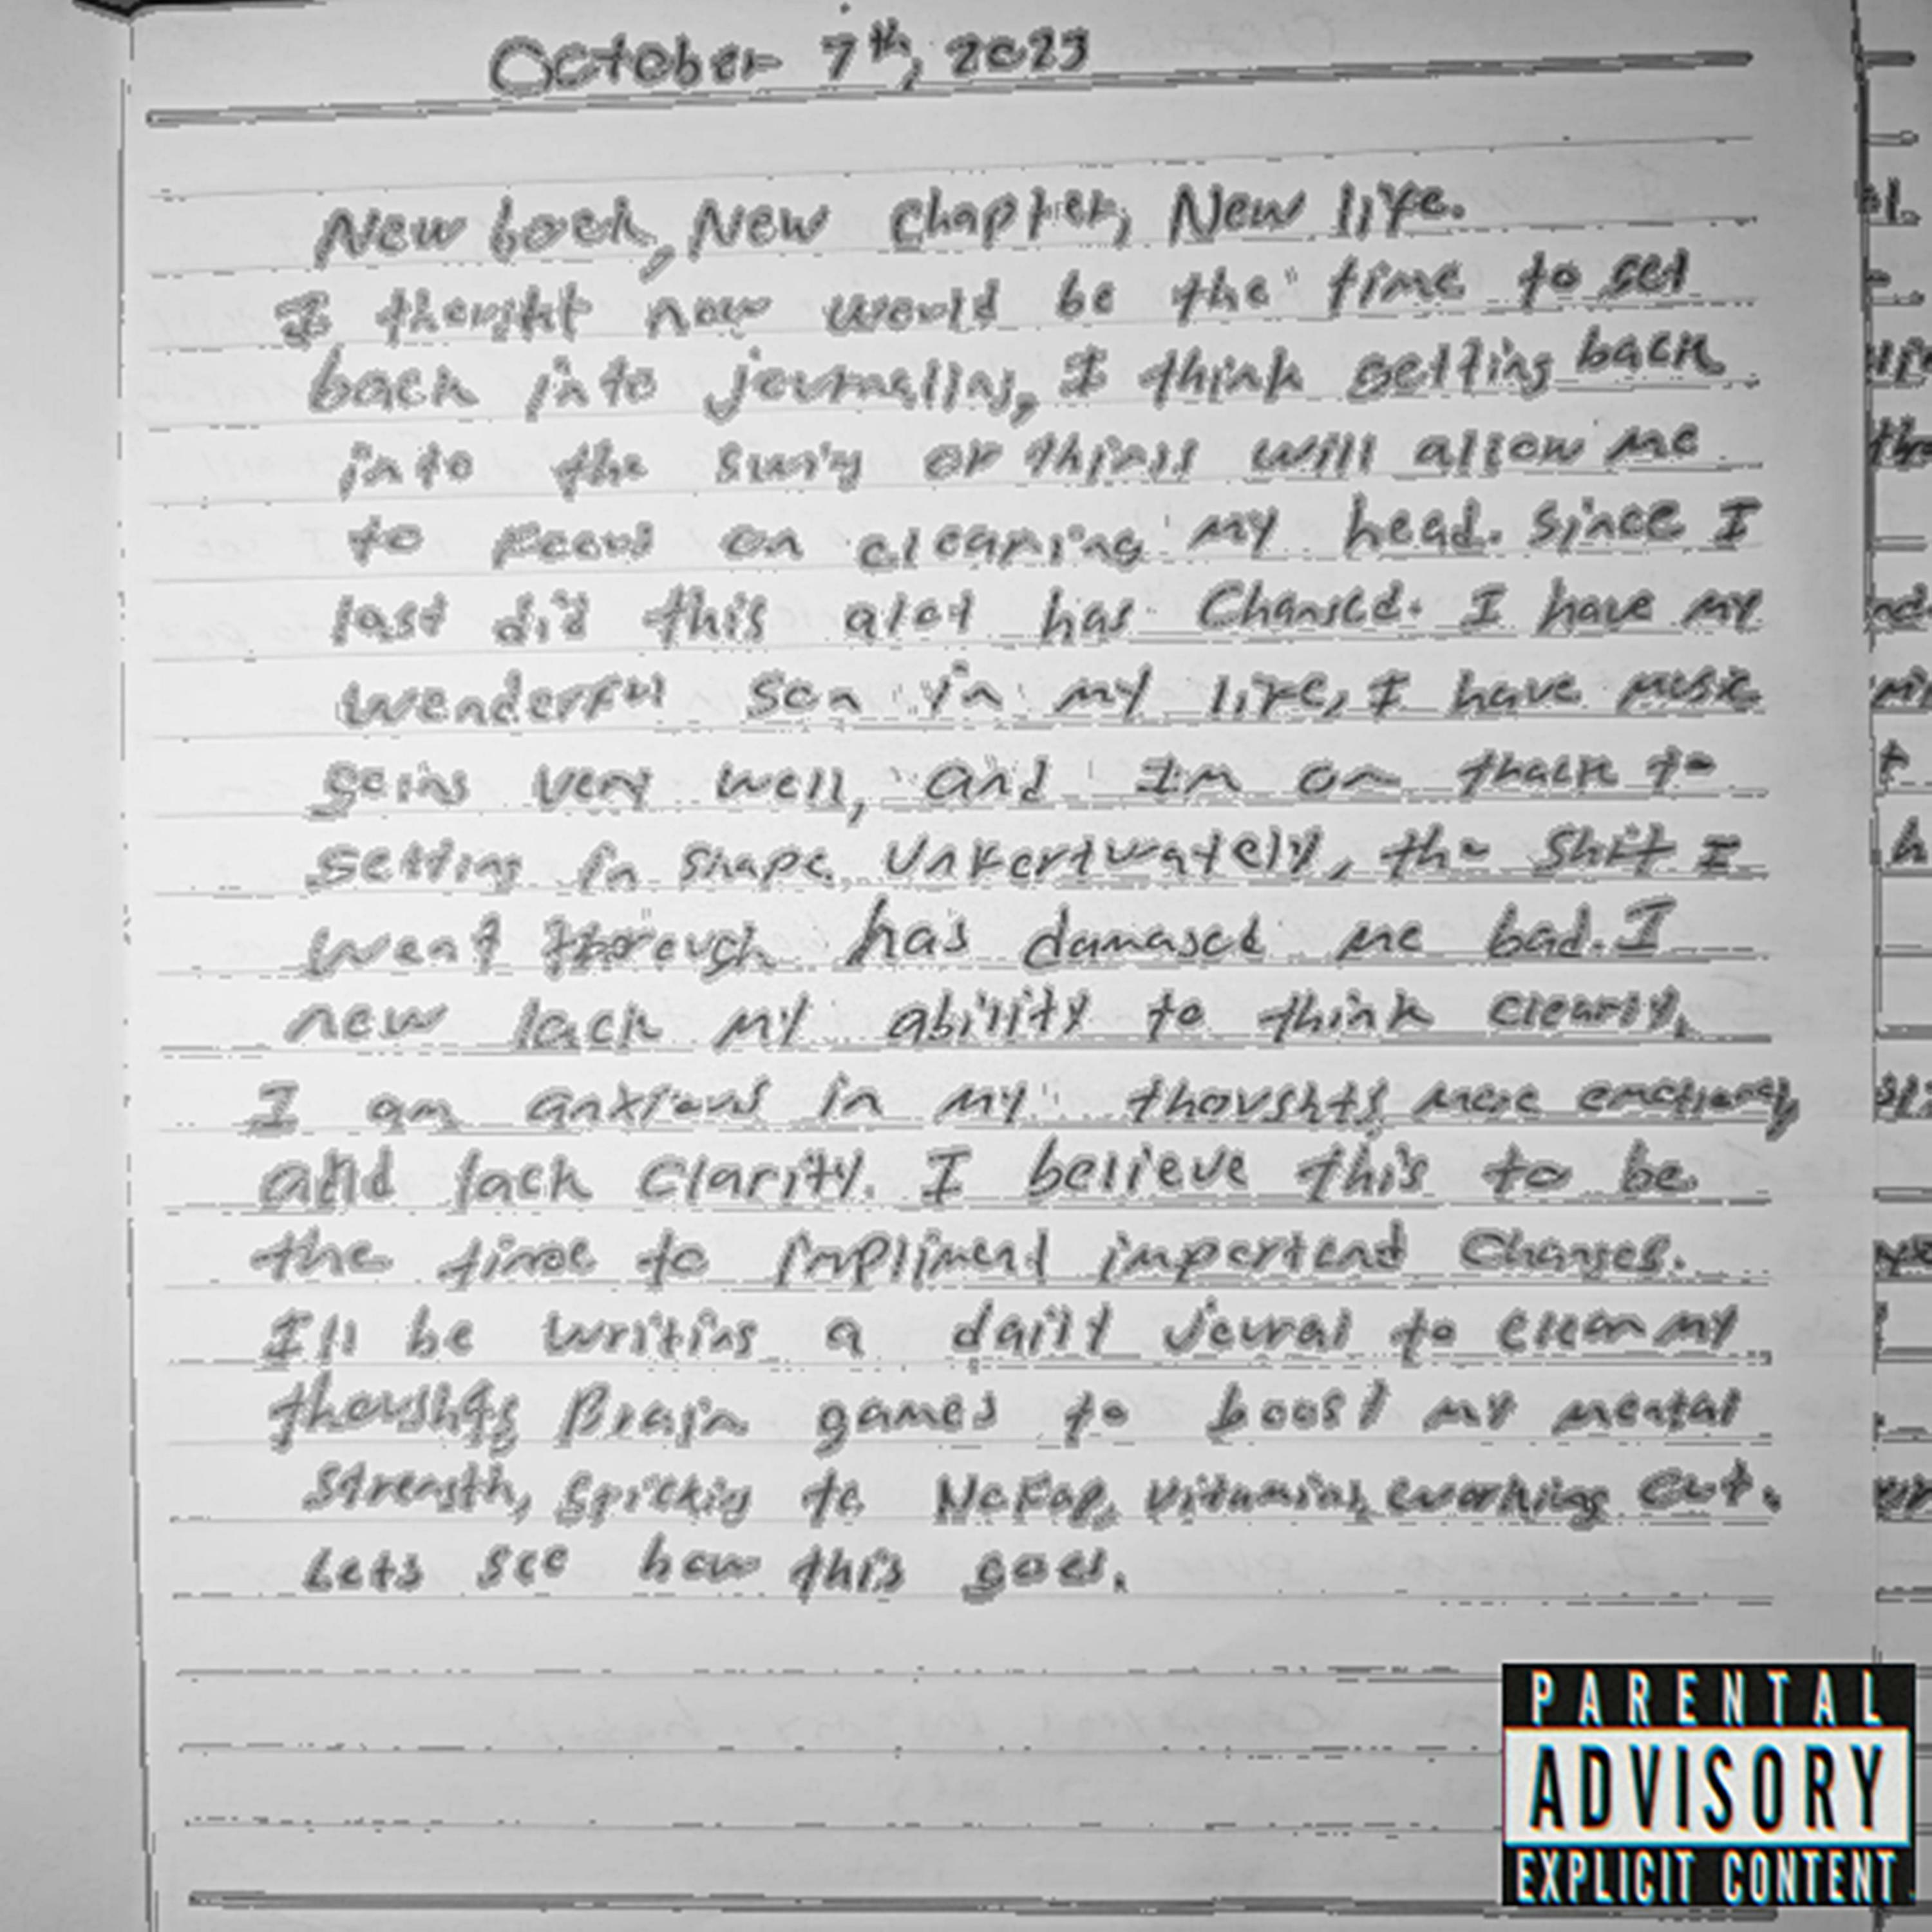 October 7th, 2023
New book, New Chapter, New life.
I thought now would be the time to get
back into journaling, I think getting back
into the swing of things will allow me
to focus on clearing my head. Since I
last did this alot has Changed. I have my
wonderful son in my life, I have music
going very well, and Im on track to
getting in shape. Unfortunately, the shit I
went through has damaged me bad. I
now lack my ability to think clearly.
I am anxious in my thoughts, more emotional,
and lack Clarity. I believe this to be
the time to impliment importand Changes.
I'll be writing a daily Joural to clear my
thoughts, Brain games to boost my mental
strength, to NoFap, vitamins, working out.
Lets see how this goes.
PARENTAL
ADVISORY
EXPLICIT CONTENT